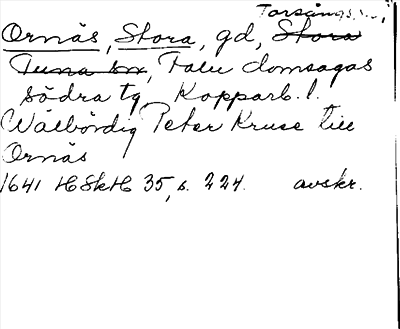 Torsångs sn,
Ornäs, Stora, gd, Stora
Tuna sn, Falu domsagas
södra tg Kopparb. l.
Wälbördig Peter Kruse till
Ornäs
1641 HSkH 35, s. 224. avskr.